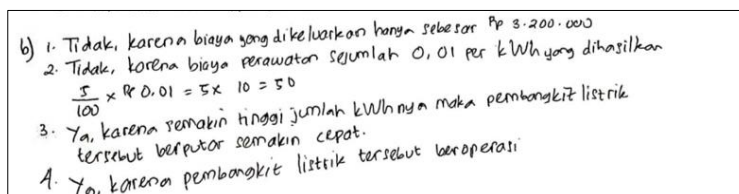 b) 1. Tidak, karena biaya yang dikeluarkan hanya sebesar Rp 3.200.000
2. Tidak, korena biaya perawatan sejumlah 0,01 per kWh yang dihasilkan
5/100 × R 0.01 = 5 × 10 = 50
3. Ya, karena semakin tinggi jumlah kWhnya maka pembangkit listrik
tersebut berputar semakin cepat.
4. Ya, karena pembangkit listrik tersebut beroperasi